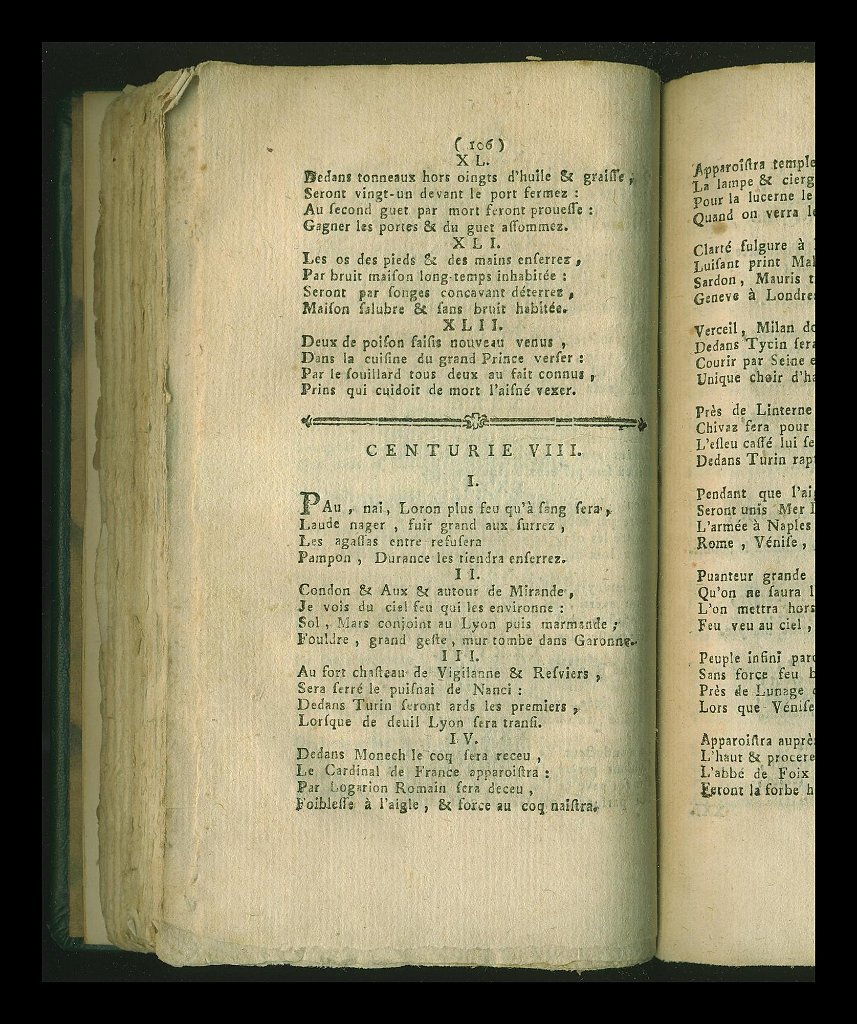 ( 106 )
XL.
Dedans tonneaux hors oingts d'huile & graiſſe ,
Seront vingt-un devant le port fermez :
Au ſecond guet par mort feront proueſſe :
Gagner les portes & du guet aſſommez.
XLI.
Les os des pieds & des mains enſerrez ,
Par bruit maiſon long-temps inhabitée :
Seront par ſonges concavant déterrez ,
Maiſon ſalubre & ſans bruit habitée.
XLII.
Deux de poiſon ſaiſis nouveau venus ,
Dans la cuiſine du grand Prince verſer :
Par le ſouillard tous deux au fait connus ,
Prins qui cuidoit de mort l'aiſné vexer.
CENTURIE VIII.
I.
PAu , nai, Loron plus feu qu'à ſang ſera ,
Laude nager , fuir grand aux ſurrez ,
Les agaſſas entre refuſera
Pampon , Durance les tiendra enſerrez.
II.
Condon & Aux & autour de Mirande ,
Je vois du ciel feu qui les environne :
Sol , Mars conjoint au Lyon puis marmande ;
Fouldre , grand geſte , mur tombe dans Garonne.
III.
Au fort chaſteau de Vigilanne & Reſviers ,
Sera ſerré le puiſnai de Nanci :
Dedans Turin ſeront ards les premiers ,
Lorſque de deuil Lyon ſera tranſi.
IV.
Dedans Monech le coq ſera receu ,
Le Cardinal de France apparoiſtra :
Par Logarion Romain ſera deceu ,
Foibleſſe à l'aigle , & force au coq naiſtra.
Apparoiſtra temple
La lampe & cierg
Pour la lucerne le
Quand on verra le
Clarté fulgure à
Luiſant print
Sardon , Mauris t
Geneve à Londres
Verceil , Milan do
Dedans Tycin ſera
Courir par Seine e
Unique choir d'ha
Près de Linterne
Chivaz ſera pour
L'eſleu caſſé lui ſe
Dedans Turin rapt
Pendant que l'aig
Seront unis Mer
L'armée à Naples
Rome , Véniſe ,
Puanteur grande
Qu'on ne ſaura l
L'on mettra hors
Feu veu au ciel ,
Peuple infini paro
Sans force feu
Près de Lunage
Lors que Véniſe
Apparoiſtra auprès
L'haut & procere
L'abbé de Foix
Feront la forbe h